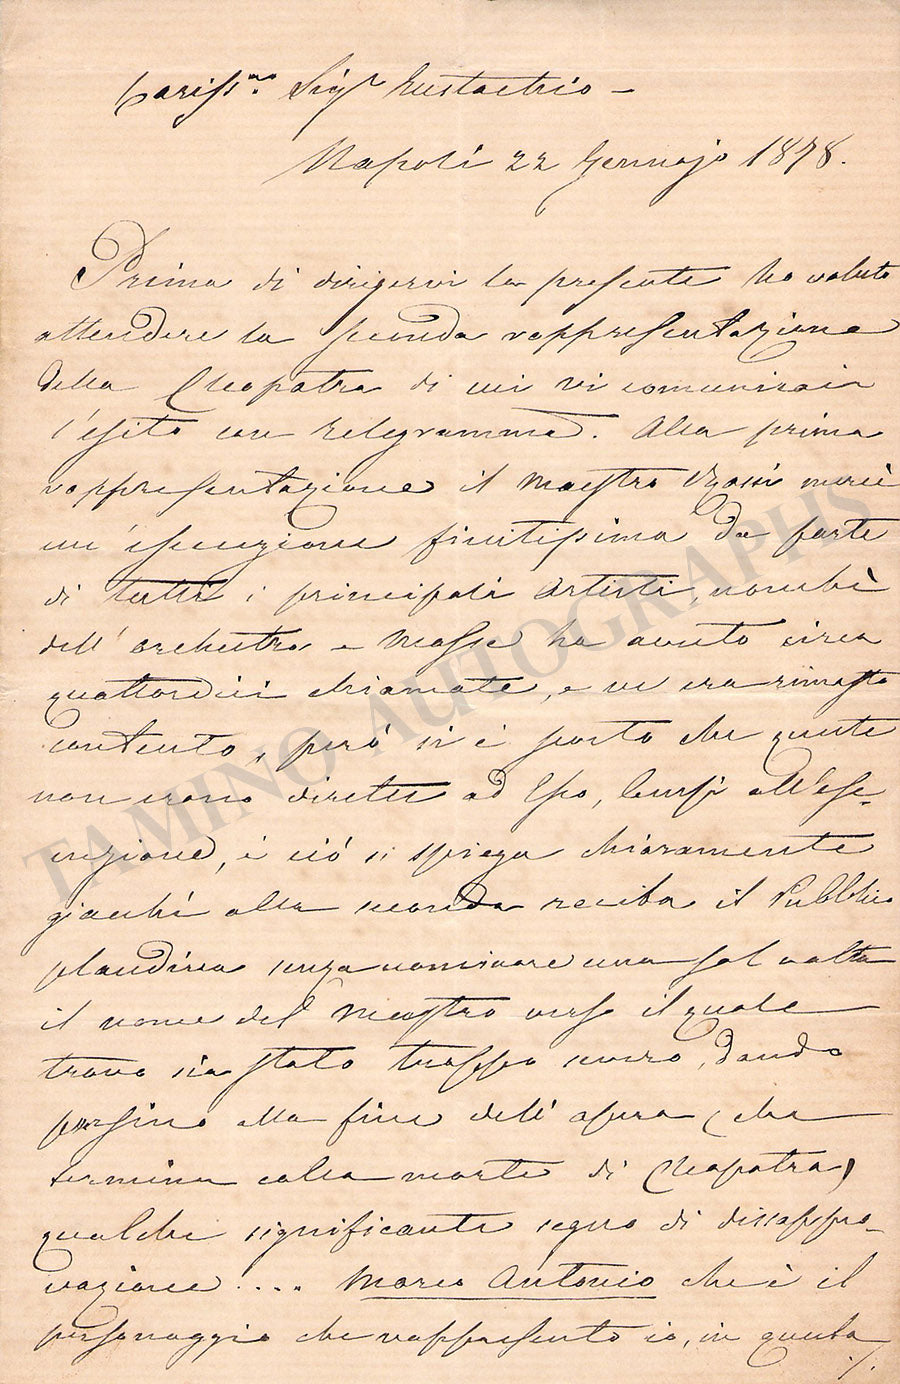 Cariss.mo Sigr Eustachio –
Napoli 22 Gennajo 1878.
Prima di dirigervi la presente ho voluto
attendere la seconda rappresentazione
della Cleopatra di cui vi comunicai
l'esito con telegramma. Alla prima
rappresentazione il Maestro Rossi mercè
un'esecuzione finitissima da parte
di tutti i principali Artisti nonchè
dell'orchestra e Masse ha avuto circa
quattordici chiamate, e ne era rimasto
contento, però si è scorto che queste
non erano dirette ad Esso, bensì all'ese-
cuzione, e ciò si spiega chiaramente
giacchè alla seconda recita il Pubblico
plaudiva senza nominare una sol volta
il nome del Maestro verso il quale
trovo sia stato troppo severo, dando
persino alla fine dell'opera (che
termina colla morte di Cleopatra)
qualche significante segno di disappro-
vazione .... Marco Antonio che è il
personaggio che rappresento io, in questa
./.
TAMINO AUTOGRAPHS